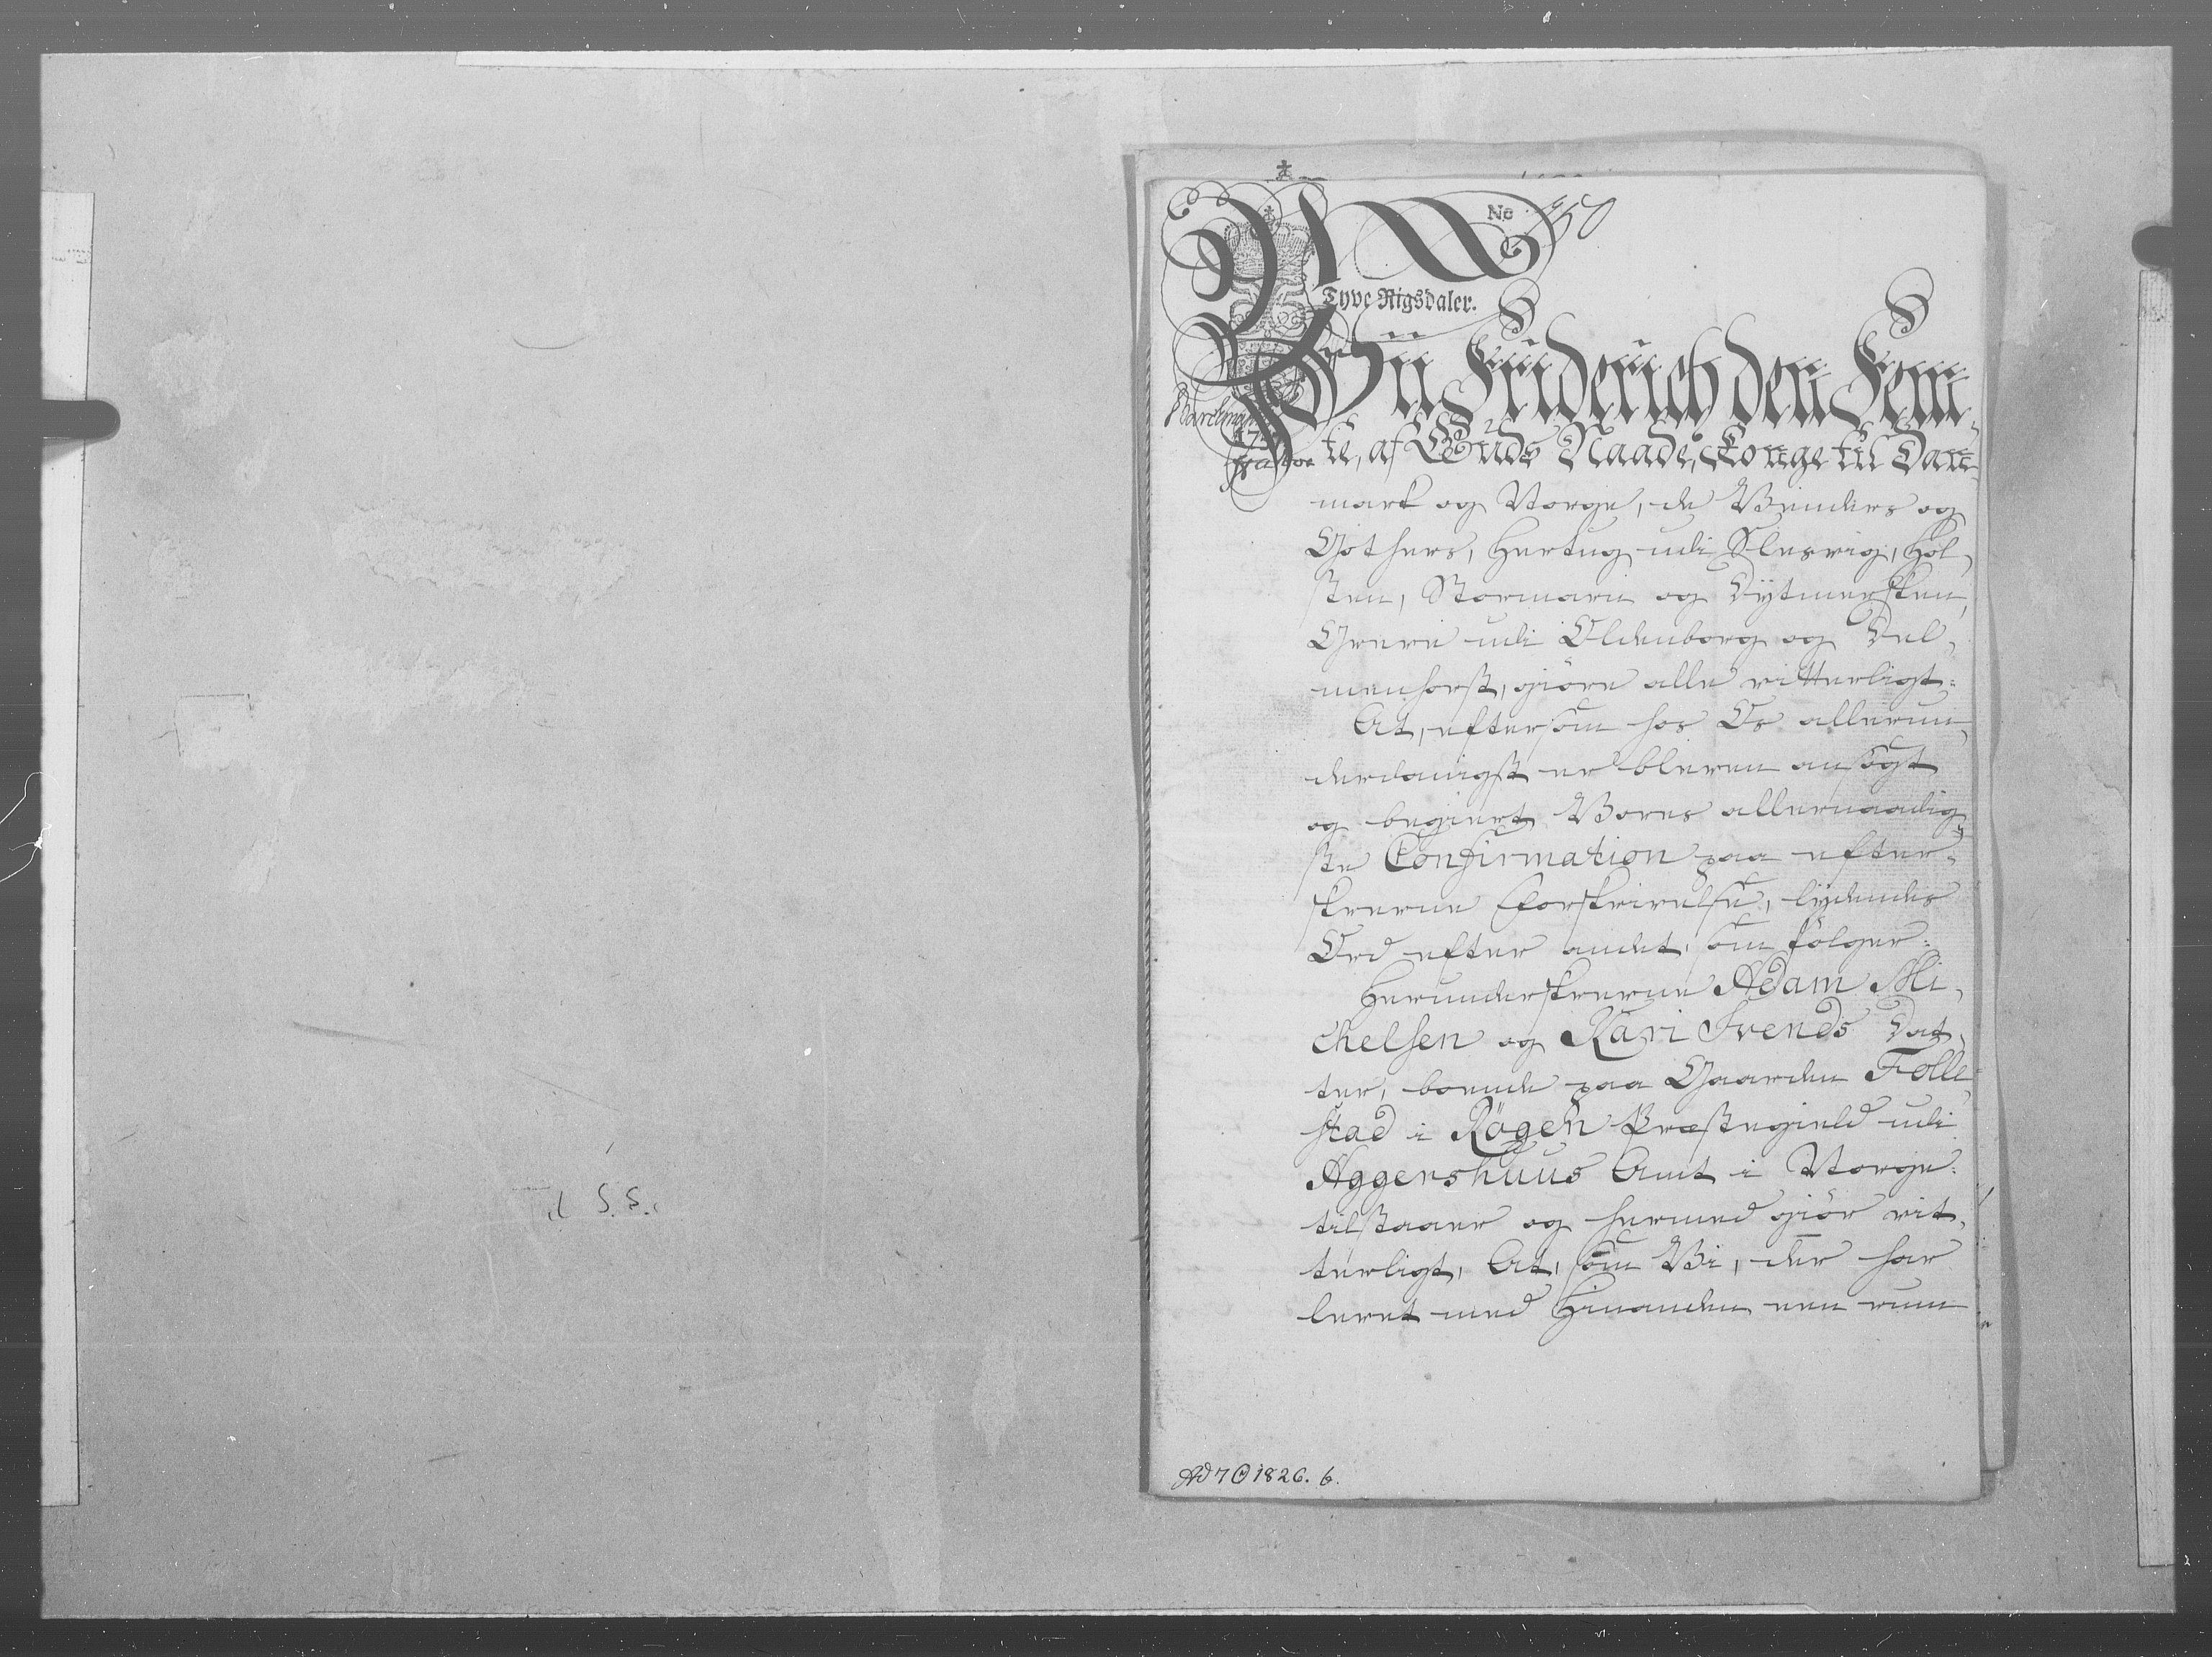 No 450
Tyve Rigsdaler.
Wii Friderich den Fem,
te, af Guds Naade, Konge til Dan,
mark og Norge, de Wenders og
Gothers, Hertug udi Slesvig, Hol,
sten, Stormarn og Dytmersken,
Greve udi Oldenborg og Del,
menhorst, giöre alle vitterligt:
At, eftersom hos Os allerun,
derdanigst er bleven ansögt
og begiert Vores allernaadig,
ste Confirmation paa efter,
skrevne Forskrivelse, lydendes
Ord efter andet, som fölger:
Herunderskrevne Adam Mi,
chelsen og Kari Svends Dat,
ter, boende paa Gaarden Folle,
stad i Rögen Præstegield udi
Aggershuus Amt i Norge:
tilstaaer og hermed giör vit,
terligt, At, som Vi, der har
levet med Hinanden een rum
Ad 7 1826. 6.